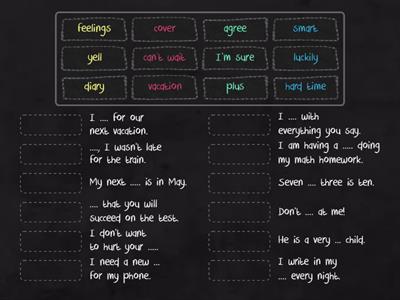 feelings cover agree smart
yell can't wait I'm sure luckily
diary vacation plus hard time
I .... for our
next vacation.
...., I wasn't late
for the train.
My next ..... is in May.
.... that you will
succeed on the test.
I don't want
to hurt your .....
I need a new ...
for my phone.
I .... with
everything you say.
I am having a ..... doing
my math homework.
Seven .... three is ten.
Don't .... at me!
He is a very ... child.
I write in my
.... every night.